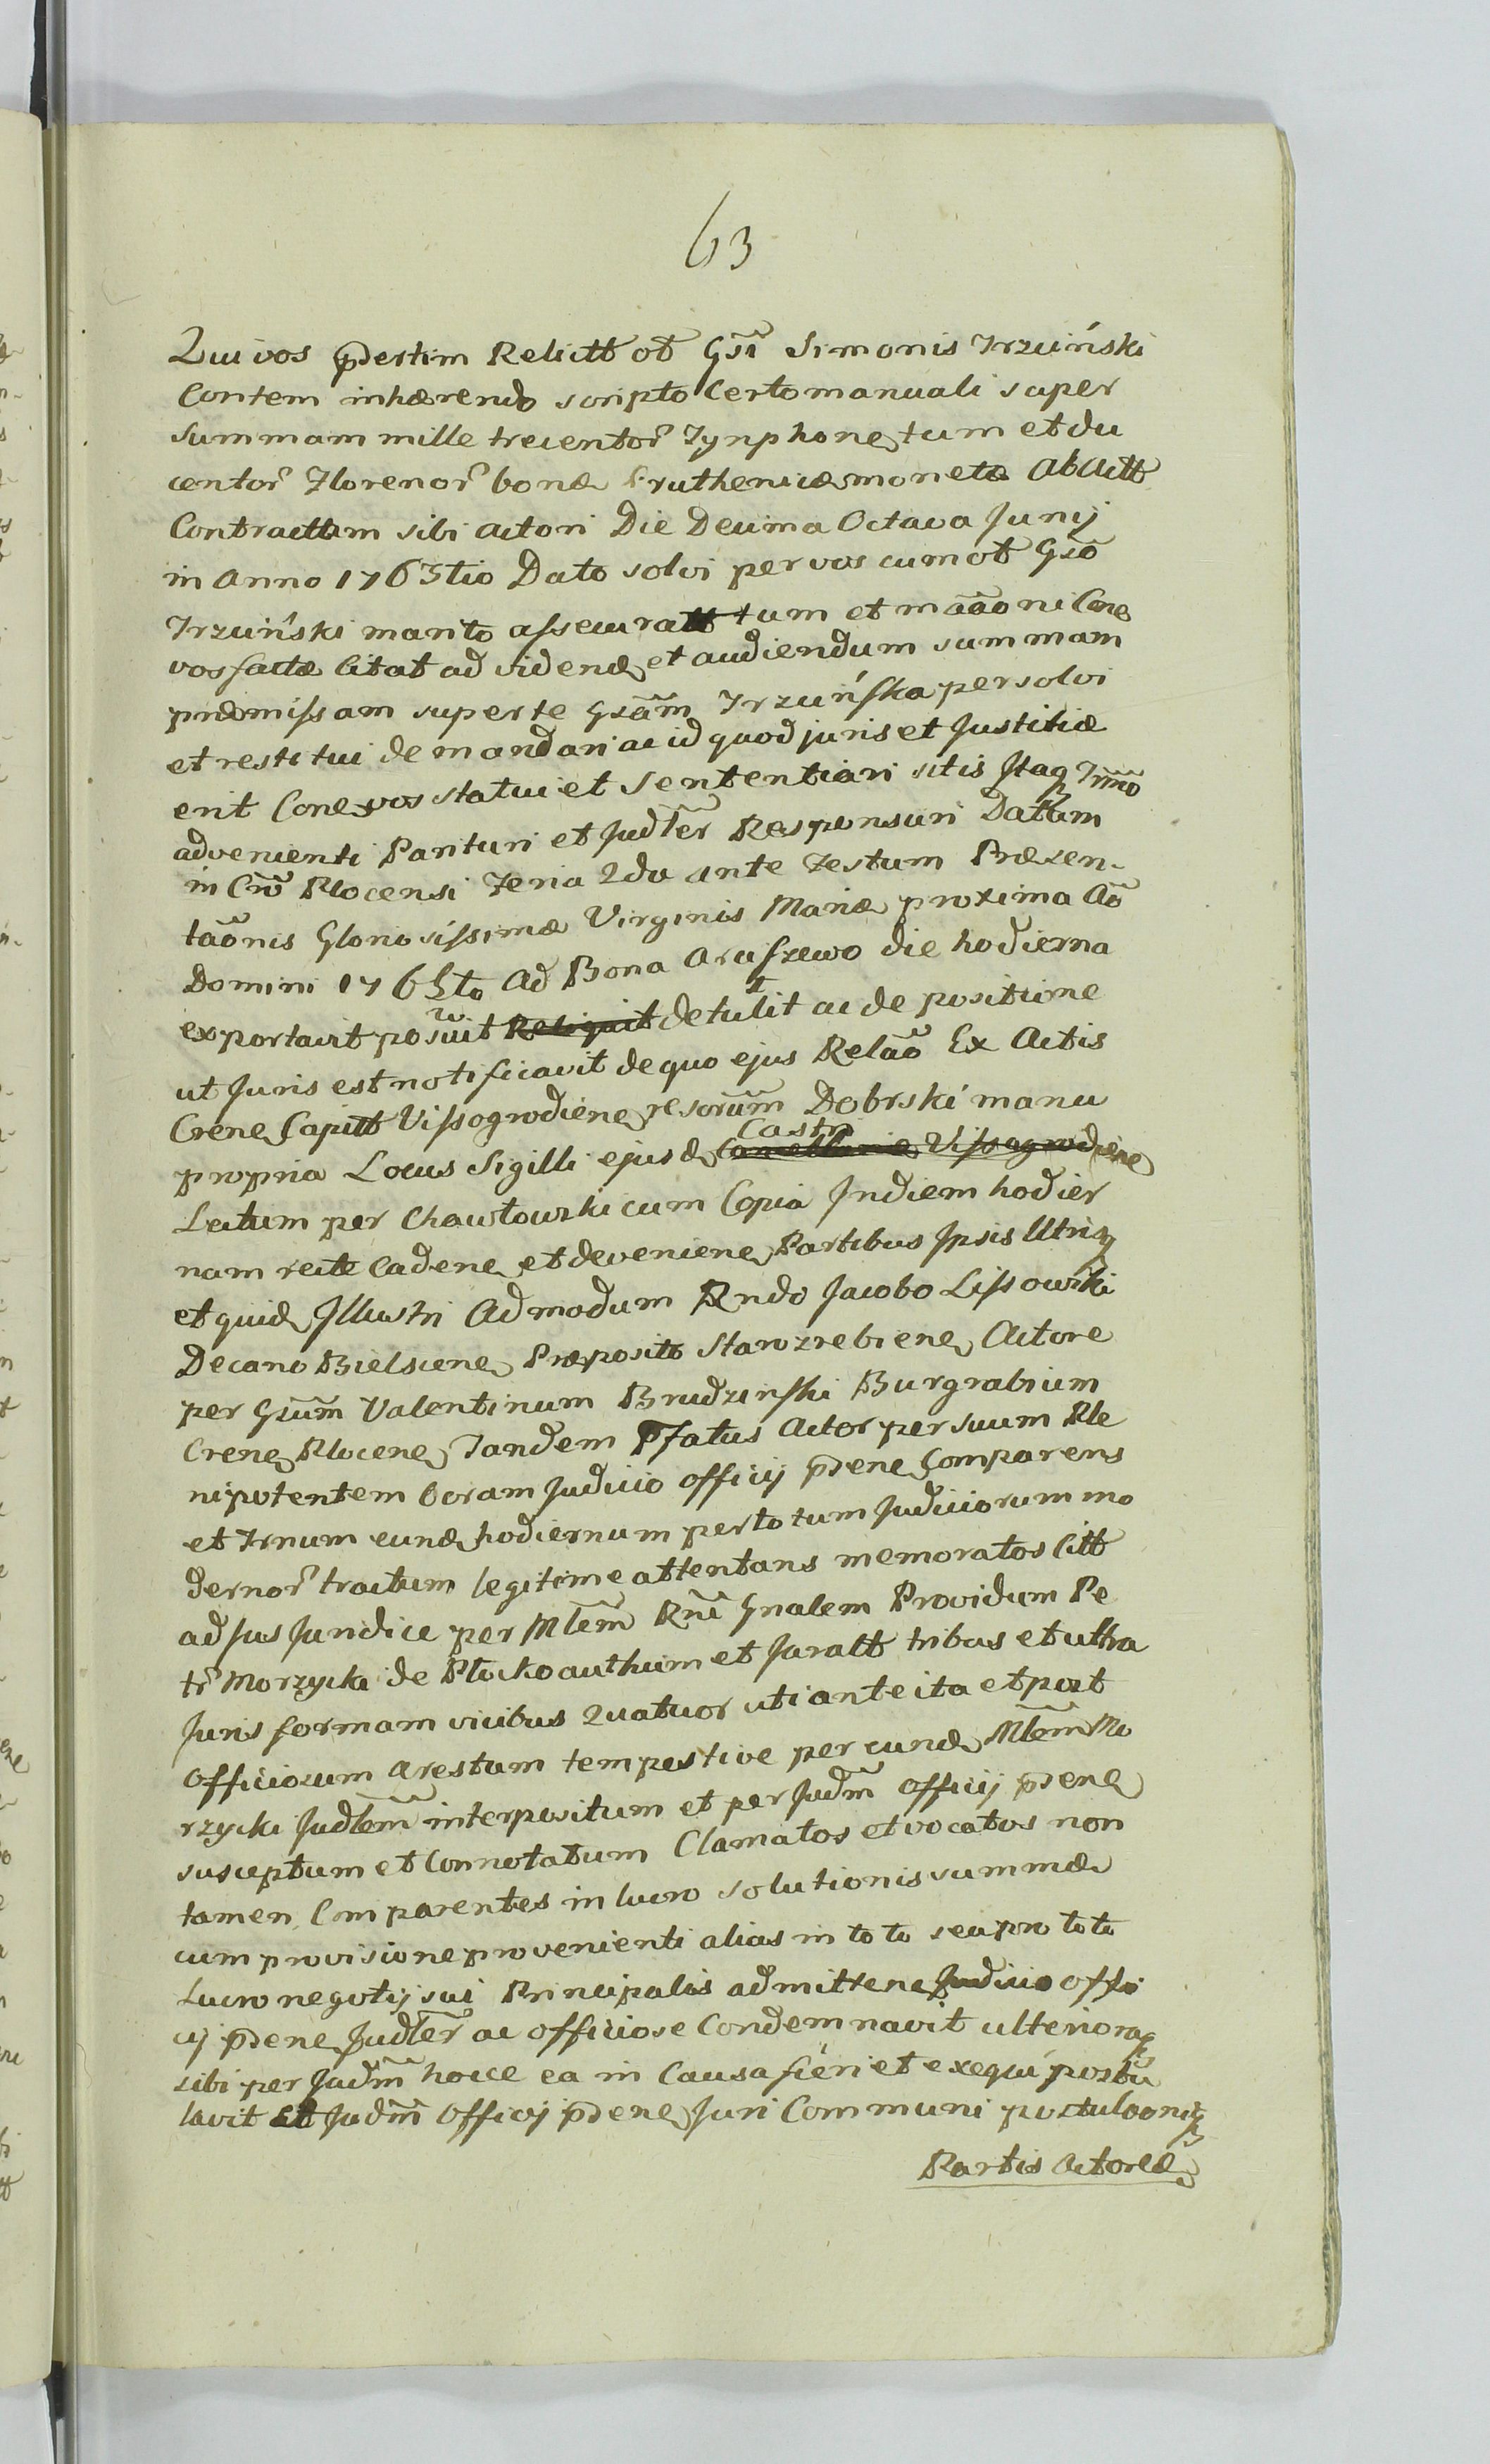 63
Qui vos p̃dertim Relictt ot̃ Gsĩ Simonis Trzciński
Contem inhærendo scripto Certo manuali super
summam mille trecentor̃ Tynphone, tum et du
centor̃ Florenor̃ bonæ Pruthenicæ monetæ ab Actt
Contracttam sibi actori Die Decima Octava Junij
in anno 1763tio Dato solvi per vos cum ot̃ Gsõ
Trzciński marito assecuratt tum et mããoni Cone
vos factæ Citat ad vidend, et audiendum summam
præmissam super te Gsãm Trzcińska persolvi
et restitui demandari ac id quod juris et Justitiæ
erit Cone, vos statui et Sententiari sitis Itaq Trmĩno
advenienti Parituri et Judlẽr Responsuri Dattum
in Crõ Plocensi Feria 2da ante Festum Præsen-
taõnis Gloriosissimæ Virginis Mariæ proxima Aõ
Domini 1765to Ad Bona Aruszewo die hodierna
exportavit posuit Reliquit detulit ac de positione
ut Juris est notificavit de quo ejus Relaõ Ex Actis
Crene, Capitt Vissogrodiene, rescrũm Dobrski manu
propria Locus Sigilli ejusd, Castri Cancellariæ Vissogrodiene
Lectum per Chawłowski cum Copia Indiem hodier
nam recte Cadene, et deveniene, Partibus Ipsis Utrisq
et quid, Illustri Admodum Rndo Jacobo Lissowski
Decano Bielscene, Præposito Starozrebiene, Actore
per Gsũm Valentinum Brudzinski Burgrabium
Crene, Plocene, Tandem Pfatus Actor per suum Ple
nipotentem Coram Judicio Officij p̃dene, Comparens
et Trnum eund, hodiernum per totum Judiciorum mo
dernor̃ tractum legitime attentans memoratos Citt
ad Jus Juridice per Mlẽm Rnĩ Gnalem Providum Pe
tr̃ Morzycki de Płocko authum et Juratt tribus et ultra
Juris formam vicibus Quatuor uti ante ita et post
Officiosum arestum tempestive per eund, Mlẽm Mo
rzycki Judlẽm interpositum et per Judm̃ Officij p̃dene,
susceptum et Connotatum Clamatos et vocatos non
tamen Comparentes in lucro solutionis summæ
cum provisione provenienti alias in toto seu pro toto
Lucro negotij sui Principalis admittene, Judicio offi
cij p̃dene, Judlẽr ac officiose Condemnavit ulterioraq
sibi per Judm̃ hocce ea in Causa fieri et exequi postu
lavit Et Judm̃ Officij p̃dene, Juri Communi postulaõniq
Partis Actoreæ